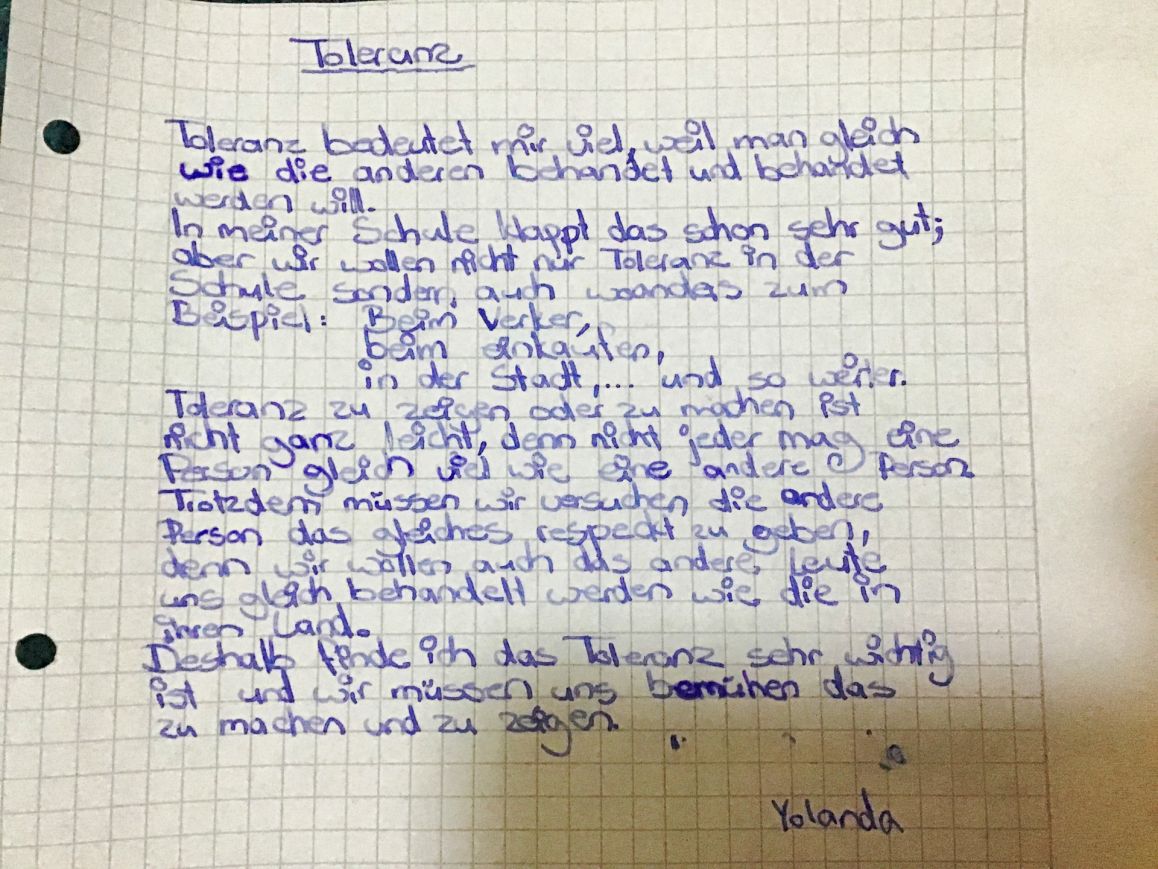 Toleranz
Toleranz bedeutet mir viel, weil man gleich
wie die anderen behandet und behandet
werden will.
In meiner Schule klappt das schon sehr gut;
aber wir wollen nicht nur Toleranz in der
Schule sondern auch woanders zum
Beispiel: Beim Verker,
beim einkaufen,
in der Stadt,... und so weiter.
Toleranz zu zeigen oder zu machen ist
nicht ganz leicht, denn nicht jeder mag eine
Person gleich viel wie eine andere Person
Trotzdem müssen wir versuchen die andere
Person das gleiches respeckt zu geben,
denn wir wollen auch das andere Leute
uns gleich behandelt werden wie die in
ihren Land.
Deshalb finde ich das Toleranz sehr wichtig
ist und wir müssen uns bemühen das
zu machen und zu zeigen.
Yolanda